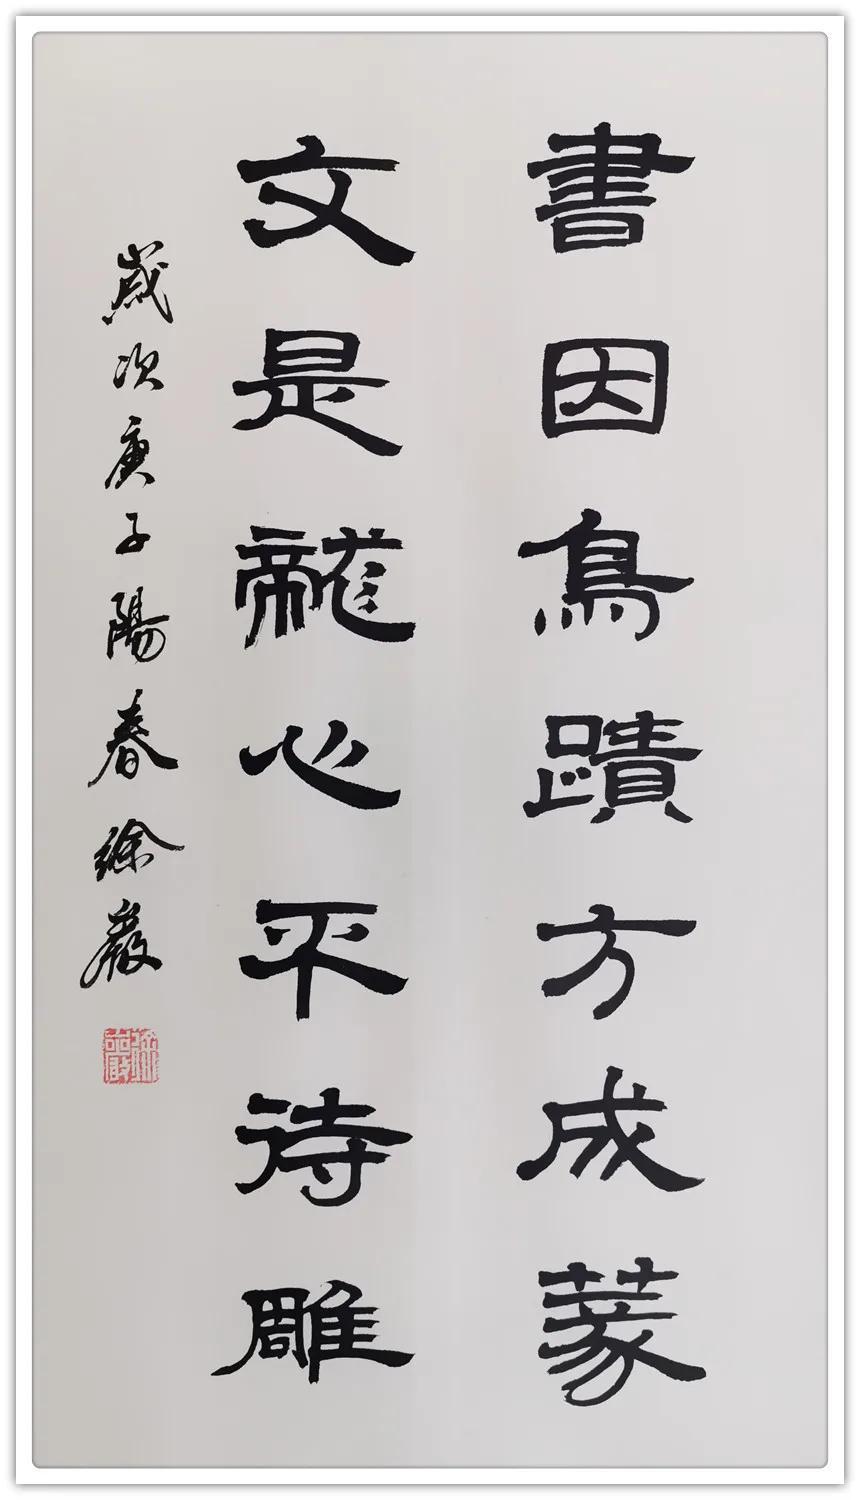 書因鳥蹟方成篆
文是龍心不待雕
歲次庚子陽春徐嚴
徐嚴